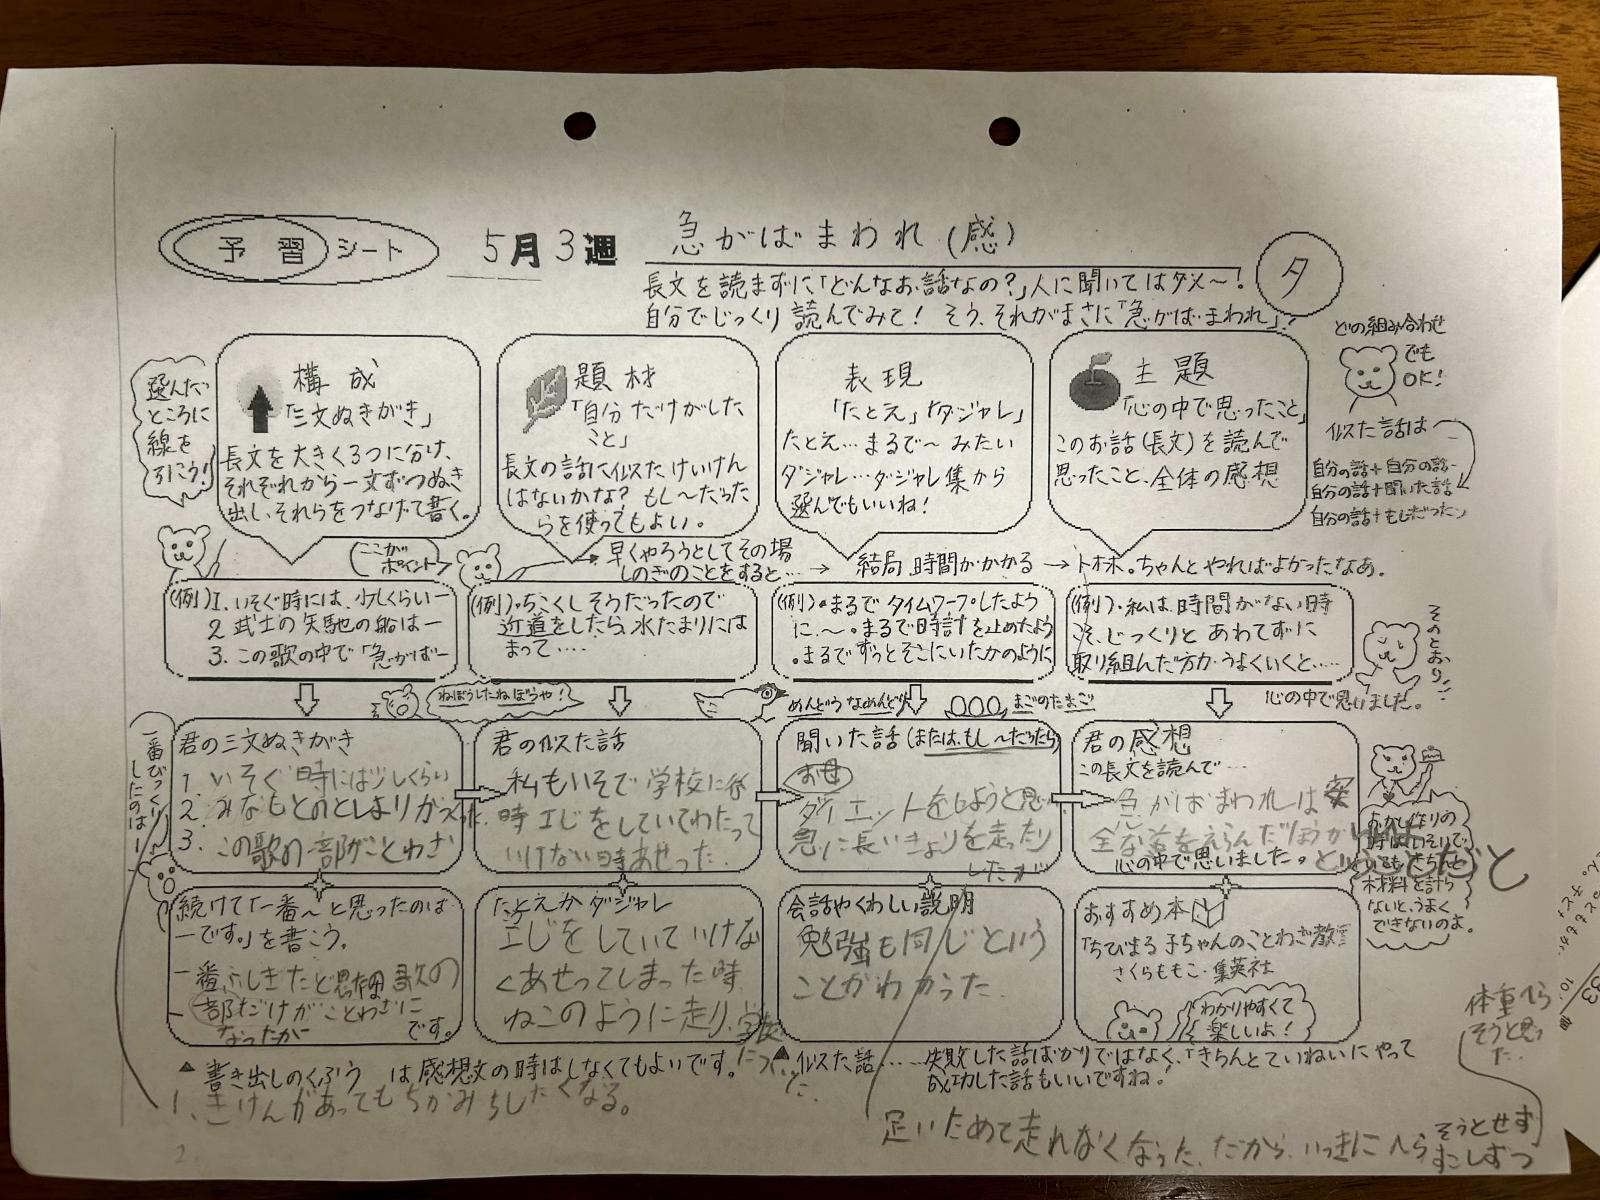 予習シート
5月3週
急がばまわれ(感)
タ
長文を読まずに「どんなお話なの?」人に聞いてはダメ〜!
自分でじっくり読んでみて! そう、それがまさに「急がばまわれ」!
選んだ
ところに
線を
引こう!
構成
「三文ぬきがき」
長文を大きく3つに分け、
それぞれから一文ずつぬき
出し、それらをつなげて書く。
題材
「自分だけがした
こと」
長文の話に似たけいけん
はないかな? もし〜だった
らを使ってもよい。
表現
「たとえ」「ダジャレ」
たとえ…まるで〜みたい
ダジャレ…ダジャレ集から
選んでもいいね!
主題
「心の中で思ったこと」
このお話(長文)を読んで
思ったこと、全体の感想
どの組み合わせ
でも
OK!
似た話は
自分の話+自分の話
自分の話+聞いた話
自分の話+もしだったら
ここが
ポイント
早くやろうとしてその場
しのぎのことをすると…
→ 結局、時間がかかる
→トホホ。ちゃんとやればよかったなあ。
(例)1. いそぐ時には、少しくらいー
2. 武士の矢馳の船はー
3. この歌の中で「急がばー
(例)・ちこくしそうだったので
近道をしたら、水たまりには
まって……
(例)・まるでタイムワープしたよう
に、〜。まるで時計を止めたよう
。まるでずっとそこにいたかのように
(例)・私は、時間がない時
こそ、じっくりとあわてずに
取り組んだ方がうまくいくと……
心の中で思いました。
そのとおり!!
ねぼうしたねぼうや!
めんどうなめんどり
まごのたまご
一番びっくり
したのはー
君の三文ぬきがき
1. いそぐ時には少しくらい
2. みなもとのとしよりがうたった
3. この歌の一部がことわざ
君の似た話
私もいそで学校に行
時工じをしていてわたって
いけない時あせった.
聞いた話(または、もし〜だったら)
お母
ダイエットをしようと思
急に長いきょりを走ったり
したが
君の感想
この長文を読んで…
急がばまわれは安
全な道をえらんだほうがいい
ということだと
心の中で思いました。
おかし作りの
時はいそいで
材料を計ら
ないと、うまく
できないのよ。
続けて「一番〜と思ったのは
ーです。」を書こう。
一番ふしぎだと思ったのは歌の
一部だけがことわざに
なったか
です。
たとえかダジャレ
工じをしていていけな
くあせってしまった時
ねこのように走り、学校
についた.
会話やくわしい説明
勉強も同じという
ことがわかった.
おすすめ本
「ちびまる子ちゃんのことわざ教室」
さくらももこ・集英社
わかりやすくて
楽しいよ!
▲書き出しのくふう は感想文の時はしなくてもよいです。
▲似た話……失敗した話ばかりではなく、「きちんとていねいにやって
成功した話もいいですね!
1、きけんがあってもちかみちしたくなる。
2.
体重へら
そうと思っ
た.
足いためて走れなくなった.だから、いっきにへらそうとせず
すこしずつ